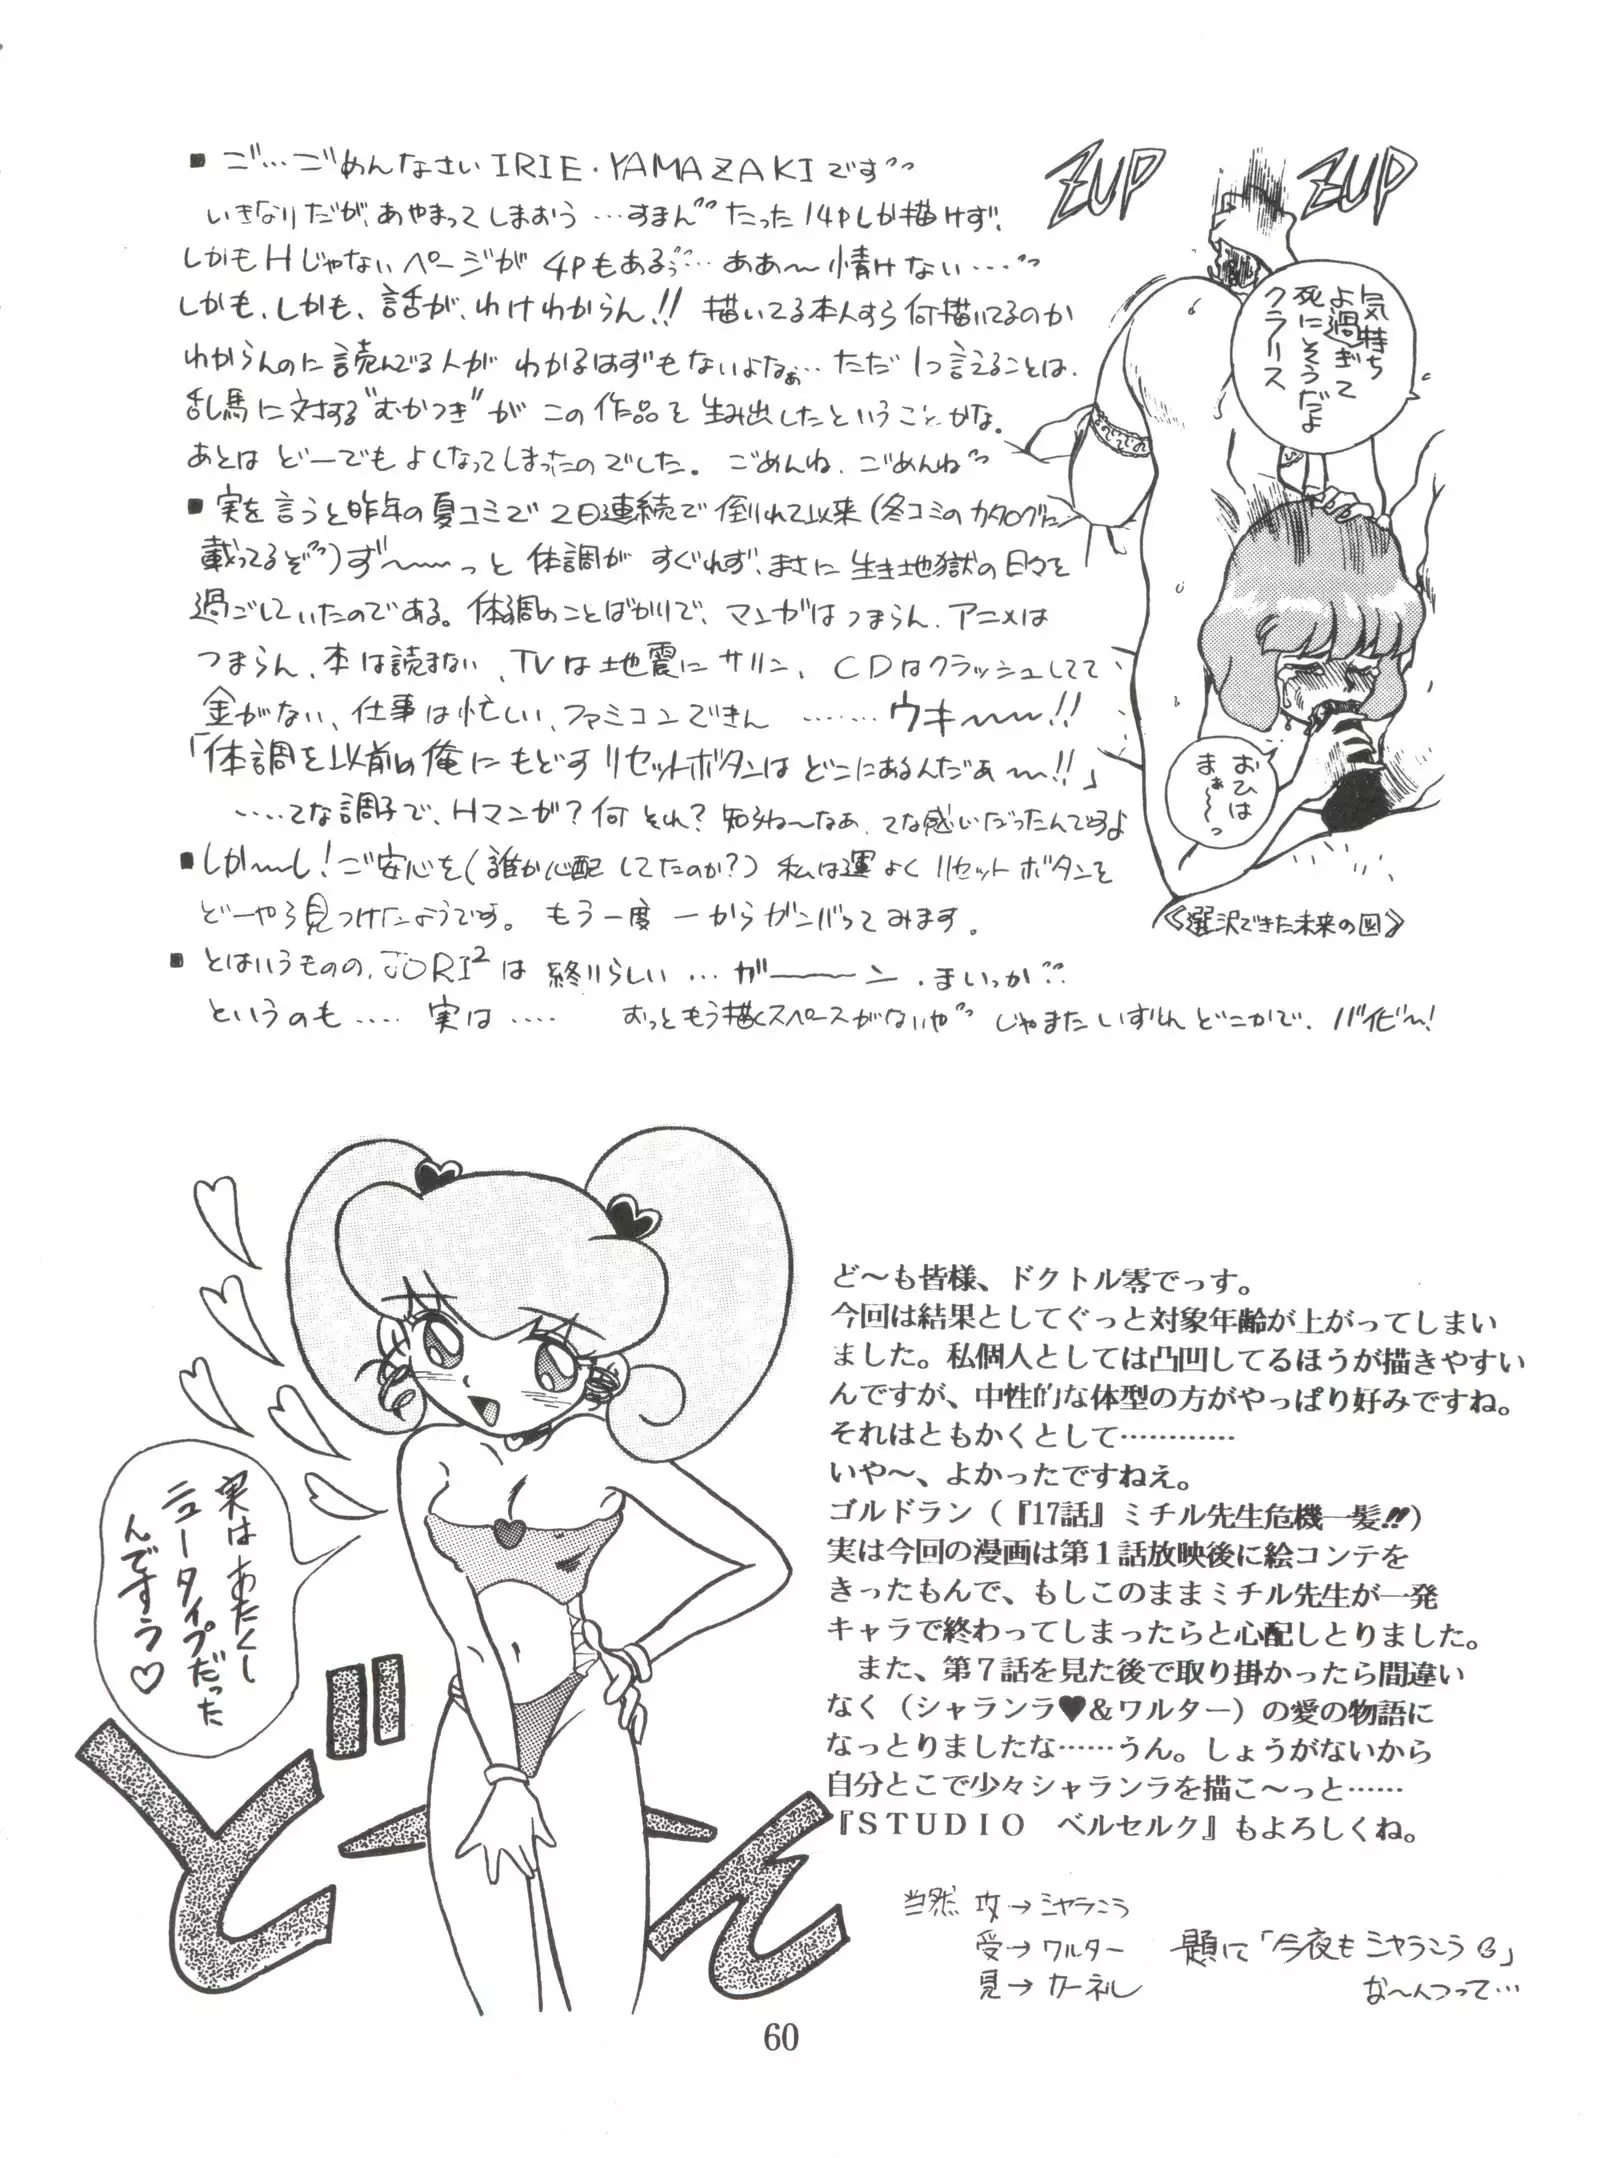 ■ ご…ごめんなさいIRIE・YAMAZAKIです
いきなりだが、あやまってしまおう…すまんたった14Pしか描けず、
しかもHじゃないページが4Pもあるぅ…ああ～情けない…
しかも、しかも、話が、わけわからん!!描いてる本人すら何描いてるのか
わからんのに読んでる人がわかるはずもないよなぁ…ただ1つ言えることは、
乱馬に対する"むかつき"がこの作品を生み出したということかな。
あとはどーでもよくなってしまったのでした。ごめんね、ごめんね
■ 実を言うと昨年の夏コミで2日連続で倒れて以来(冬コミのカタログに
載ってるぞ)ず～～っと体調がすぐれず、まさに生き地獄の日々を
過ごしていたのである。体調のことばかりで、マンガはつまらん、アニメは
つまらん、本は読まない、TVは地震にサリン、CDはクラッシュしてて
金がない、仕事は忙しい、ファミコンできん……ウキ～～!!
「体調を以前の俺にもどすリセットボタンはどこにあるんだぁ～!!」
…‥てな調子で、Hマンガ?何それ?知らね～なぁ、てな感じだったんですよ
■ しか～～し!ご安心を(誰か心配してたのか?)私は運よくリセットボタンを
どーやら見つけたようです。もう一度一からガンバってみます。
■ とはいうものの、JORI²は終りらしい…ガーーン、まいっか
というのも……実は……おっともう描くスペースがないやじゃまたいずれどこかで、バイビ～!
実はあたくし
ニュータイプだった
んですう♡
ど～も皆様、ドクトル零でっす。
今回は結果としてぐっと対象年齢が上がってしまい
ました。私個人としては凸凹してるほうが描きやすい
んですが、中性的な体型の方がやっぱり好みですね。
それはともかくとして…………
いや～、よかったですねえ。
ゴルドラン(『17話』ミチル先生危機一髪!!)
実は今回の漫画は第1話放映後に絵コンテを
きったもんで、もしこのままミチル先生が一発
キャラで終わってしまったらと心配しとりました。
また、第7話を見た後で取り掛かったら間違い
なく(シャランラ♥&ワルター)の愛の物語に
なっとりましたな……うん。しょうがないから
自分とこで少々シャランラを描こ～っと……
『STUDIO ベルセルク』もよろしくね。
60